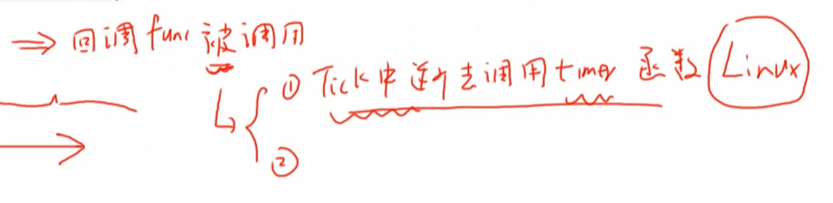 ⇒ 回调func被调用
① Tick中逐个去调用timer 函数 Linux
②